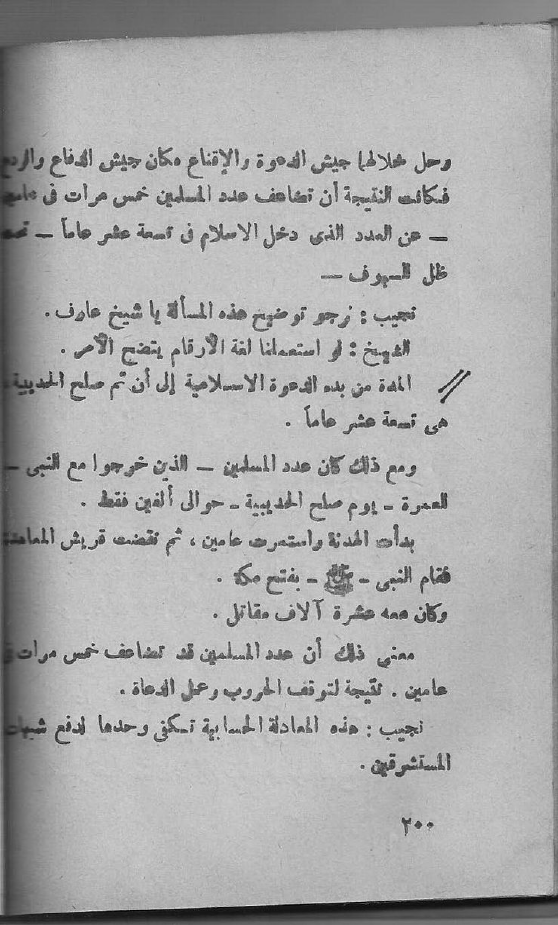 وحل خلالها جيش الدعوة والإقناع مكان جيش الدفاع والردع
فكانت النتيجة أن تضاعف عدد المسلمين خمس مرات فى عامين
— عن العدد الذى دخل الاسلام فى تسعة عشر عاماً — تحت
ظل السيوف —
نجيب : نرجو توضيح هذه المسألة يا شيخ عارف .
الشيخ : لو استعملنا لغة الأرقام يتضح الأمر .
المدة من بدء الدعوة الاسلامية إلى أن تم صلح الحديبية
هى تسعة عشر عاماً .
ومع ذلك كان عدد المسلمين — الذين خرجوا مع النبى —
للعمرة - يوم صلح الحديبية - حوالى ألفين فقط .
بدأت الهدنة واستمرت عامين ، ثم نقضت قريش المعاهدة
فقام النبى - ﷺ - بفتح مكة .
وكان معه عشرة آلاف مقاتل .
معنى ذلك أن عدد المسلمين قد تضاعف خمس مرات فى
عامين . نتيجة لتوقف الحروب وعمل الدعاة .
نجيب : هذه المعادلة الحسابية تكفى وحدها لدفع شبهات
المستشرقين .
٢٠٠